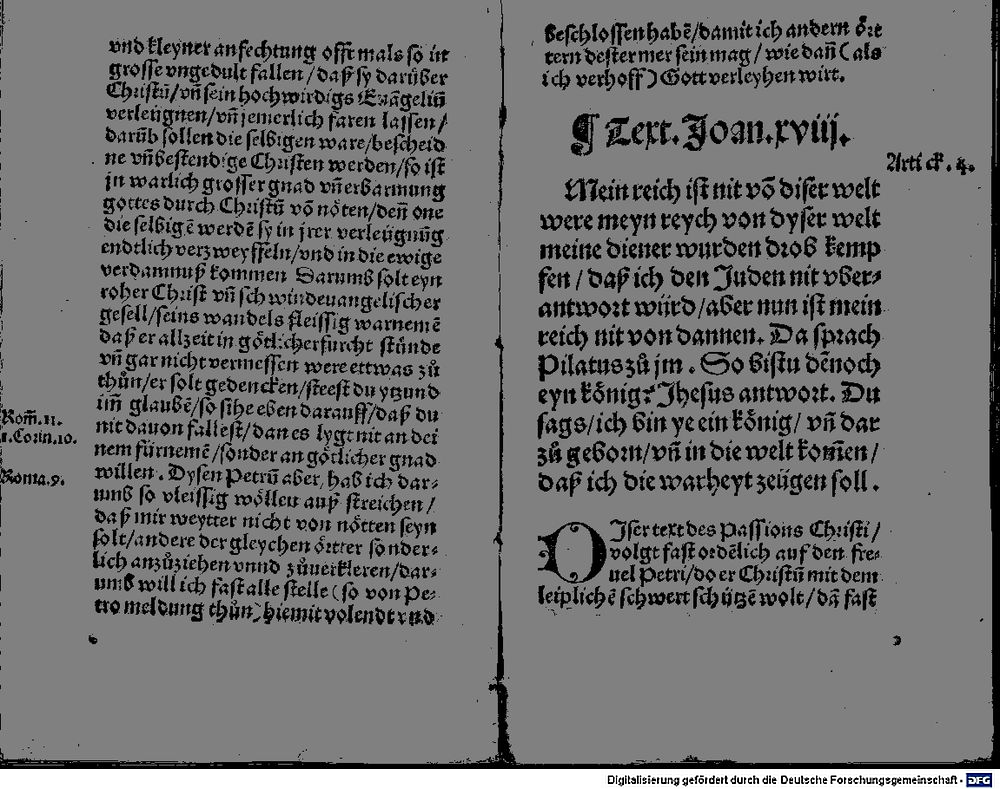 vnd kleyner anfechtung offt mals so in
grosse vngedult fallen / daß sy darüber
Christū/vñ sein hochwirdigs Euāgeliū
verleügnen/vñ jemerlich faren lassen/
darūb sollen die selbigen ware/bescheid
ne vñ bestendige Christen werden/so ist
jn warlich grosser gnad vñ erbarmung
gottes durch Christū vō nöten/deñ one
die selbigē werdē sy in jrer verleügnūg
endtlich verzweyffeln/vnd in die ewige
verdamnuß kommen Darumb solt eyn
roher Christ vñ schwindeuangelischer
gesell/seins wandels fleissig warnemē
daß er allzeit in götlicher furcht stünde
vñ gar nicht vermessen were ettwas zů
thůn/er solt gedencken/steest du ytzund
im̄ glaubē/so sihe eben darauff/daß du
nit dauon fallest/dan es lygt nit an dei
nem fürnemē/sonder an götlicher gnad
willen. Dysen Petrū aber, hab ich dar-
umb so vleissig wöllen auß streichen /
daß mir weytter nicht von nötten seyn
solt/andere der gleychen örtter sonder-
lich anzůziehen vnnd zůuerkleren/dar-
umb will ich fast alle stelle (so von Pe-
tro meldung thůn) hiemit volendt vnd
Rom̄.11.
1.Corin.10.
Roma.9.
beschlossen habē/damit ich andern ör-
tern dester mer sein mag / wie dañ (als
ich verhoff) Gott verleyhen wirt.
¶ Text. Joan.xviij.
Artick.4.
Mein reich ist nit vō diser welt
were meyn reych von dyser welt
meine diener wurden drob kemp
fen / daß ich den Juden nit vber-
antwort würd/aber nun ist mein
reich nit von dannen. Da sprach
Pilatus zů jm . So bistu dēnoch
eyn könig? Jhesus antwort. Du
sags/ich bin ye ein könig/ vñ dar
zů geborn/vñ in die welt kom̄en/
daß ich die warheyt zeügen soll .
DJser text des Passions Christi/
volgt fast ordēlich auf den fre-
uel Petri/do er Christū mit dem
leiplichē schwert schützē wolt/dā fast